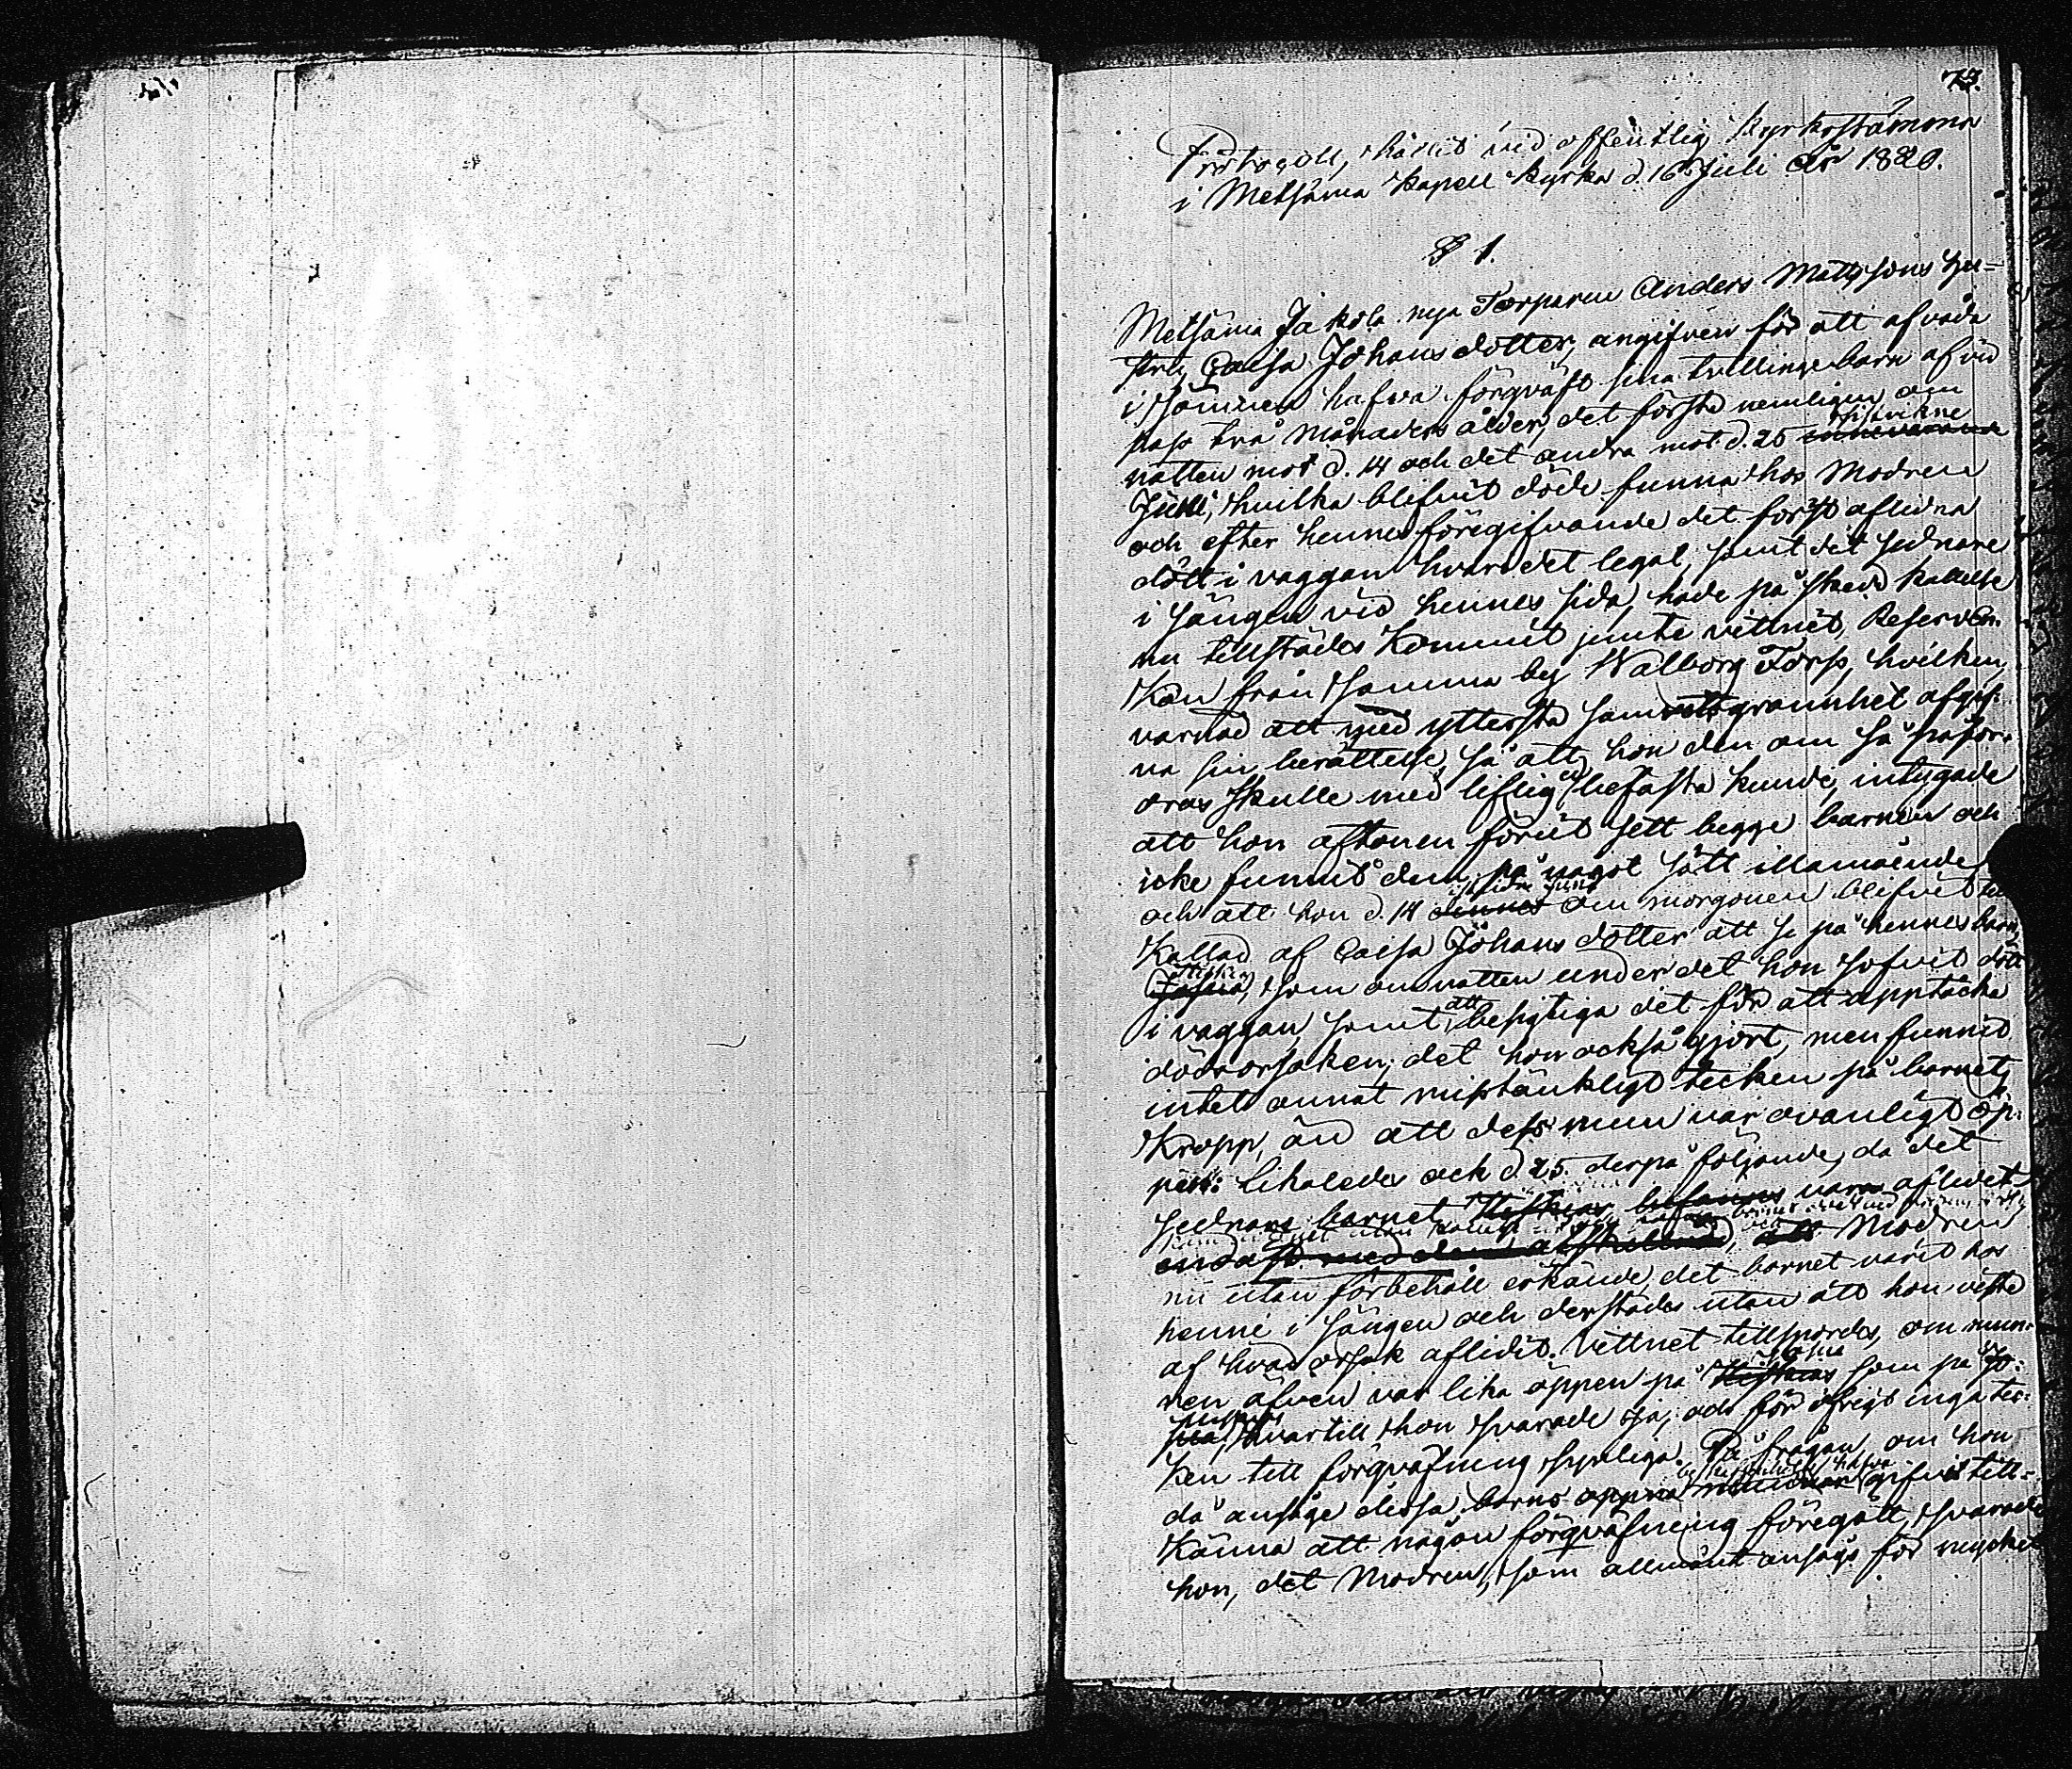 73.
Protocoll, hållit vid offentlig Kyrkostämma
i Metsämä Kapell Kyrka d. 16 Juli år 1820.
§ 1.
Metsämä Jakola nya Torparen Anders Mattssons hu-
stru Caisa Johansdotter, angifven för att af våda
i sömnen hafva förqväft sina tvillingebarn af vid
pass två månaders ålder, det första nemligen om
sistvikne
natten mot d. 14 och det andra mot d. 25 innevarande
Juni, hvilka blifvit döde funna hos Modren
och efter hennes föregifvande det först aflidna
dödt i vaggan hvari det legat, samt det sednare
i sängen vid hennes sida, hade på skedd kallelse
nu tillstädes kommit jemte vittnet, Reserven-
kan från samma by Walborg Torp, hvilken,
varnad att med yttersta samvetsgrannhet afgif-
va sin berättelse, så att hon den om så påfor-
dras skulle med liflig ed befästa kunde, intygade
att hon aftonen förut sett begge barnen och
icke funnit dem på något sätt illamående
sistledne Juni
och att hon d. 14 dennes om morgonen blifvit till
Kallad af Caisa Johansdotter att se på hennes barn
som om natten under det hon sofvit dödt
att
i vaggan, samt besigtiga det för att upptäcka
dödsorsaken; det hon också gjort, men funnit
intet annat misstänkligt tecken på barnets
Kropp, än att dess mun var ovanligt öp-
pen: likaledes ock d. 25. derpå följande, då det
sednare barnet befanns vara aflidet
och
endast med den åtskillnad, att Modren
nu utan förbehåll erkände, det barnet varit hos
henne i sängen och derstädes utan att hon visste
af hvad orsak aflidit. Vittnet tillspordes, om mun-
nen äfven var lika öppen på som på Jo-
hvartill hon svarade ja, och för öfrigt inga tec-
ken till förqväfning synliga. På frågan, om hon
då ansåge dessa barns öppna gifvit till-
känna att någon förqväfning föregått, svarade
hon, det Modren, som allmänt ansågs för mycket